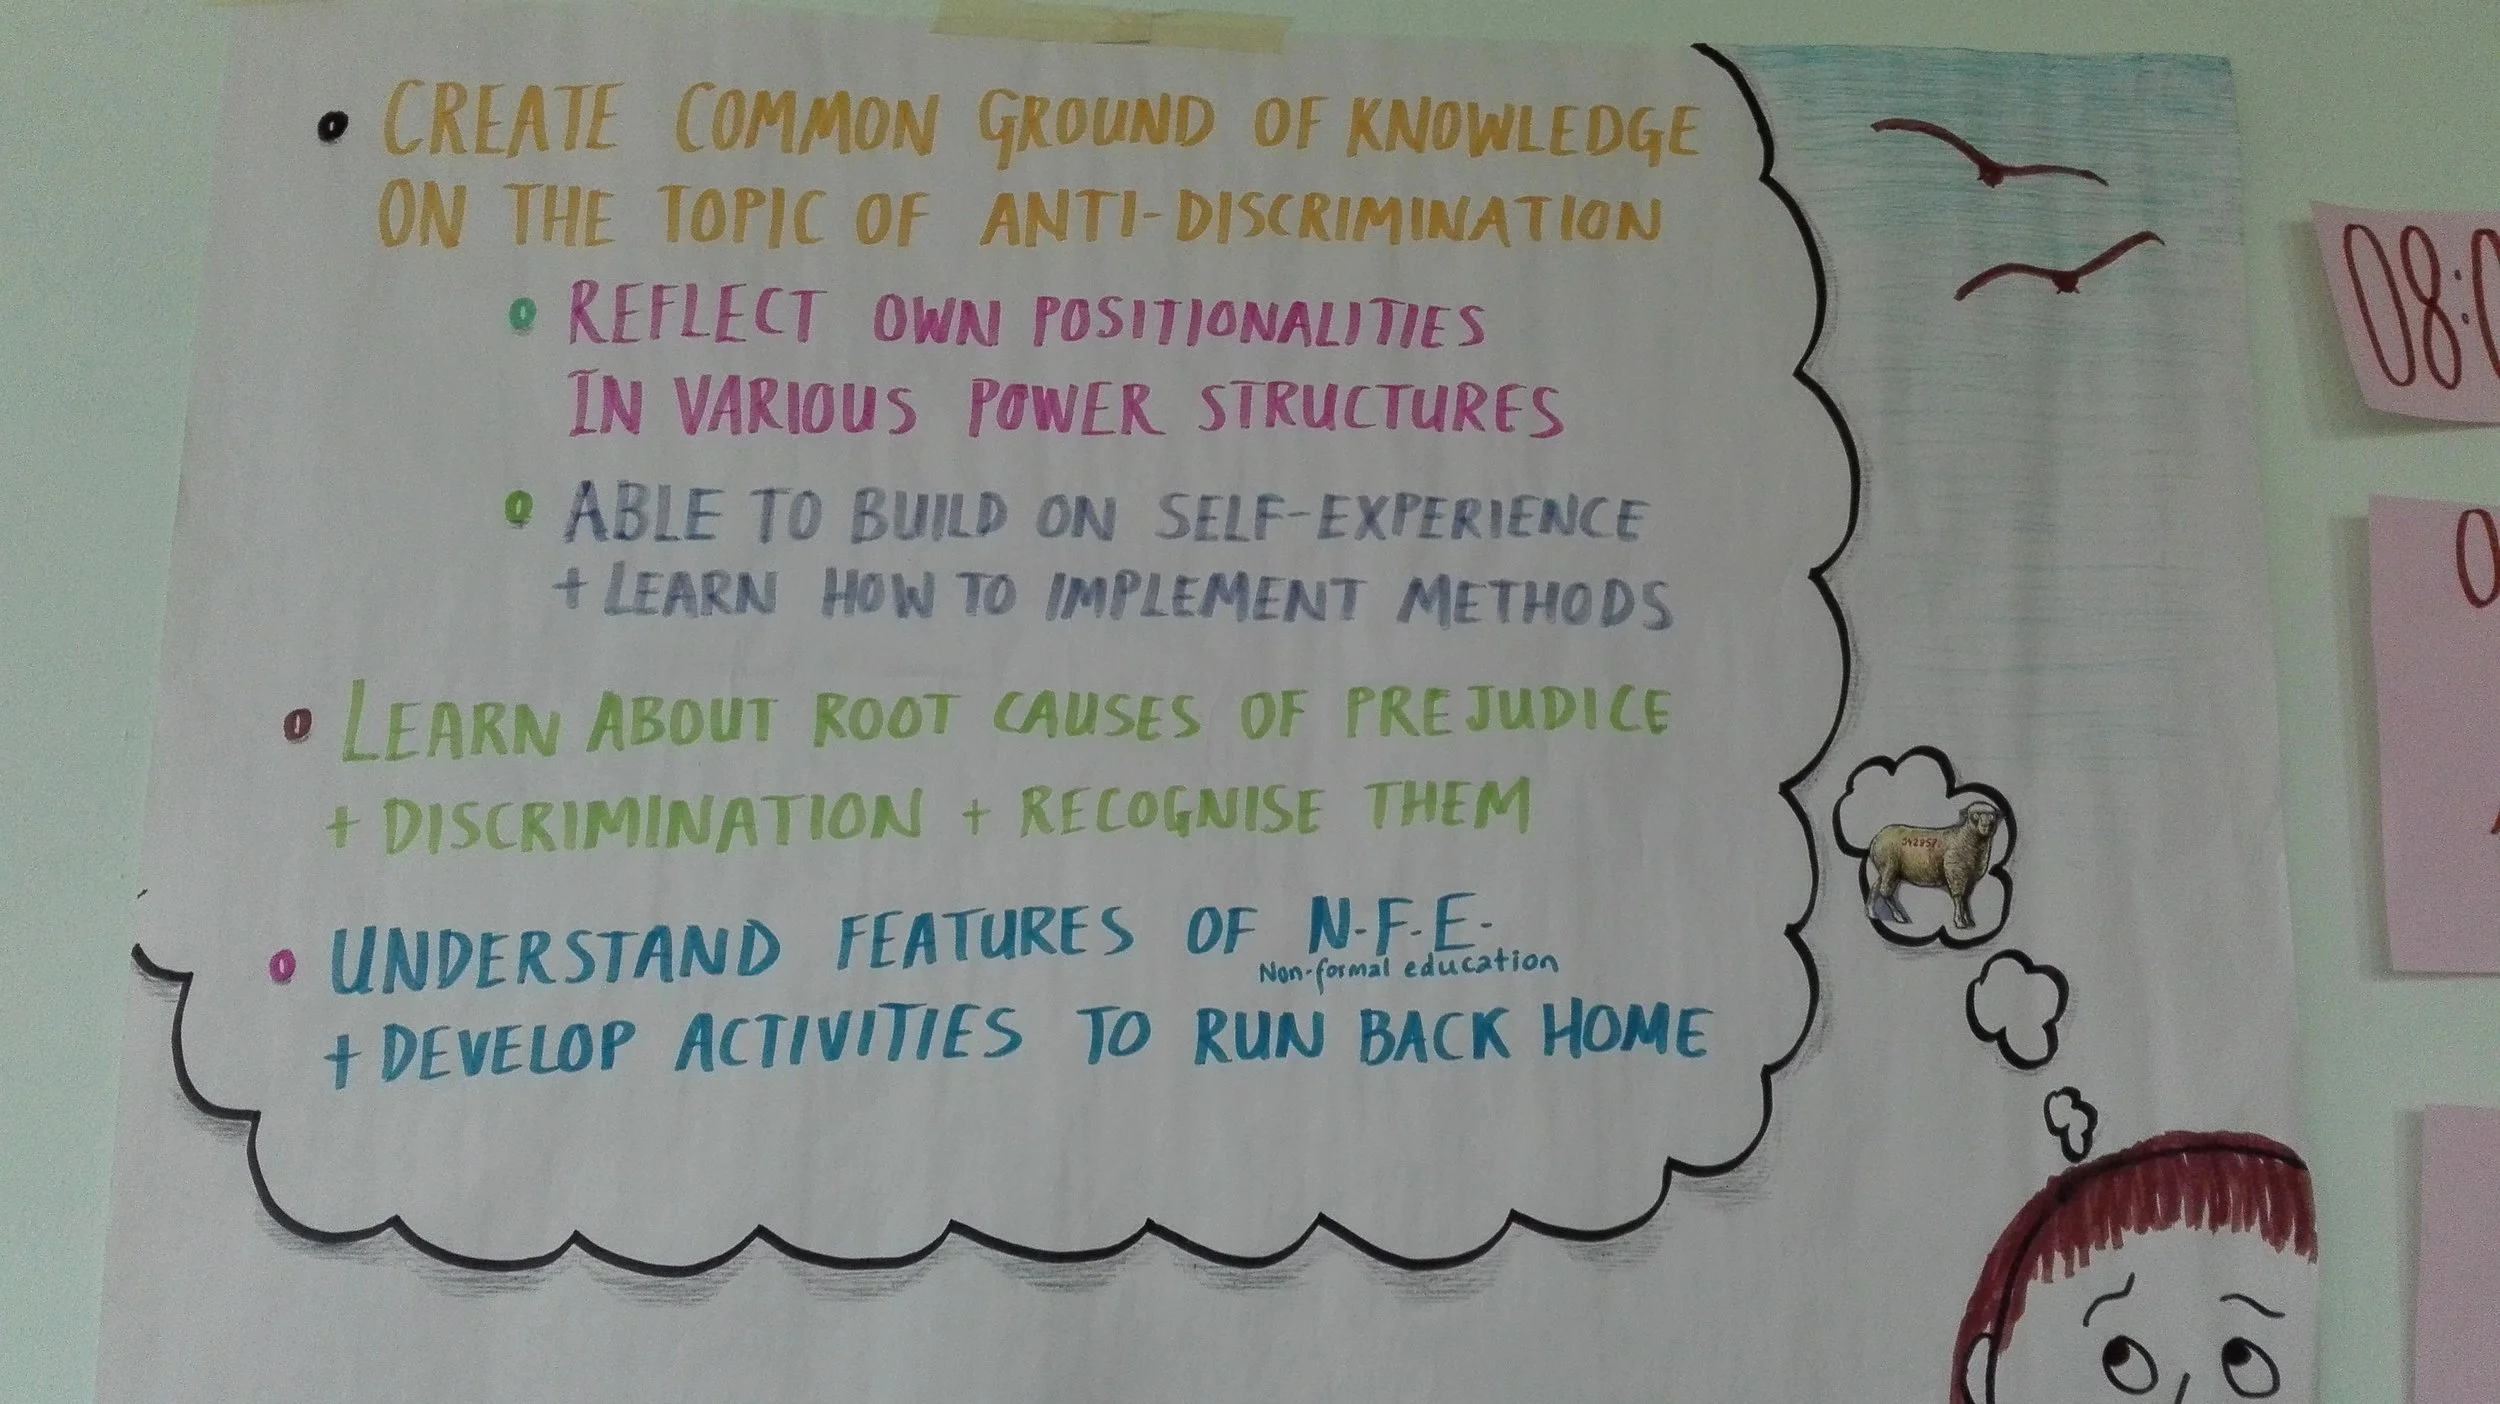 CREATE COMMON GROUND OF KNOWLEDGE
ON THE TOPIC OF ANTI-DISCRIMINATION
REFLECT OWN POSITIONALITIES
IN VARIOUS POWER STRUCTURES
ABLE TO BUILD ON SELF-EXPERIENCE
+ LEARN HOW TO IMPLEMENT METHODS
LEARN ABOUT ROOT CAUSES OF PREJUDICE
+ DISCRIMINATION + RECOGNISE THEM
UNDERSTAND FEATURES OF N.F.E.
Non-formal education
+ DEVELOP ACTIVITIES TO RUN BACK HOME